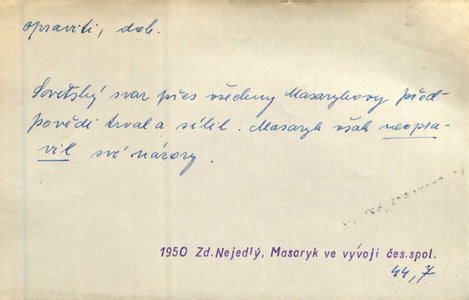 opraviti, dok.
Sovětský svaz přes všechny Masarykovy před-
povědi trval a sílil. Masaryk však neopra-
vil své názory.
1950 Zd.Nejedlý, Masaryk ve vývoji čes.spol.
44,7